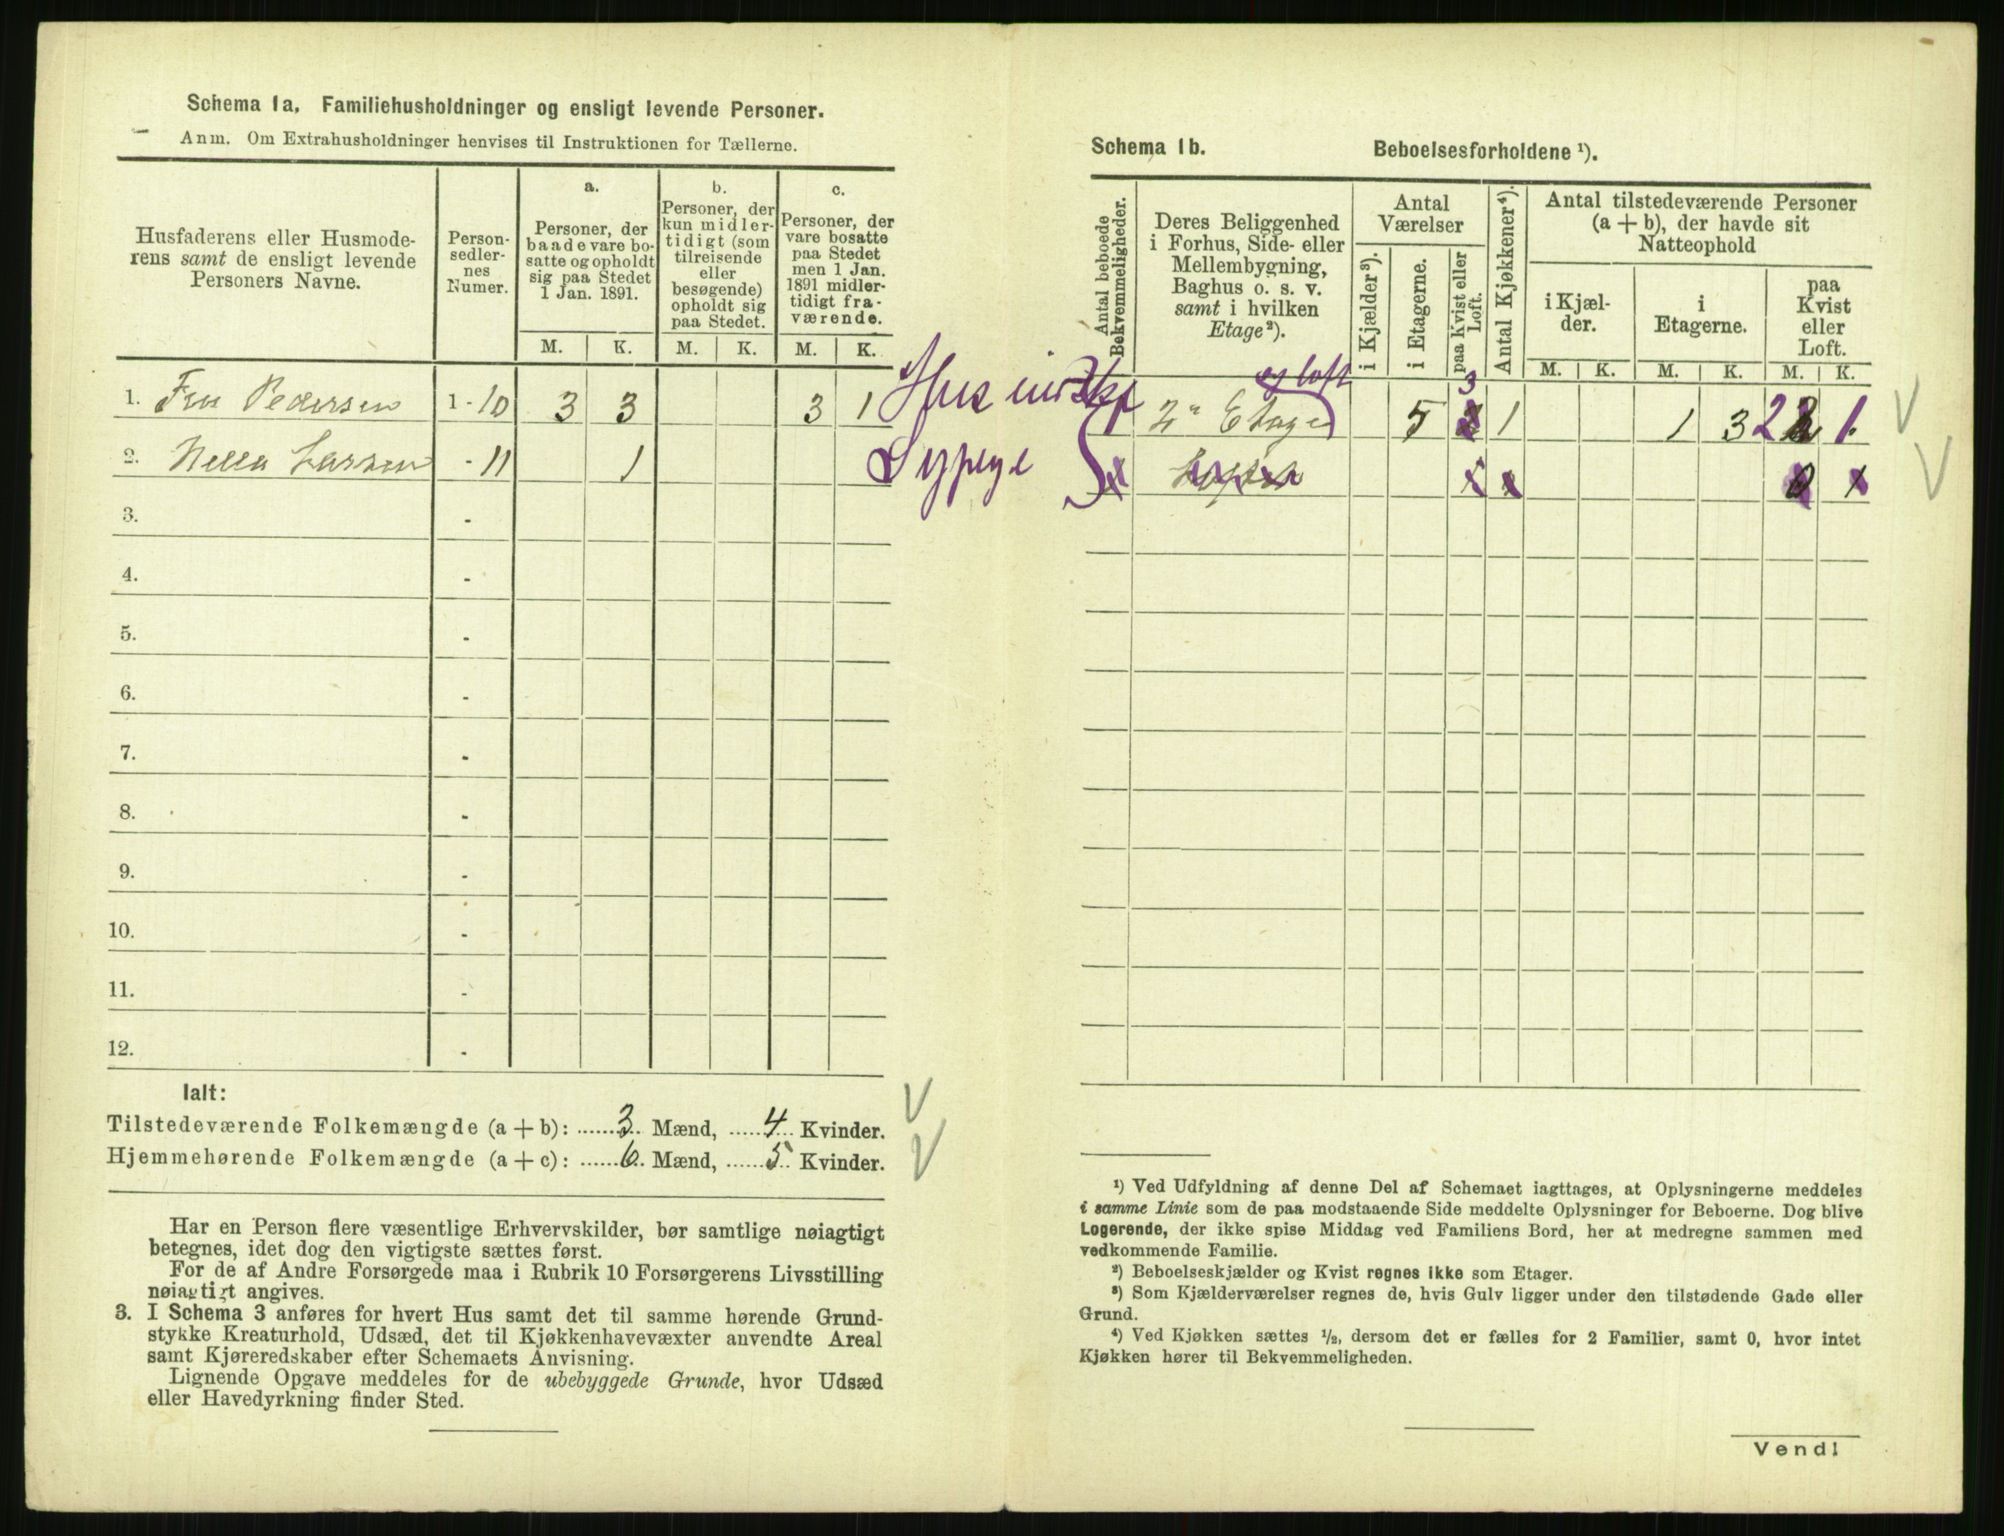 Schema 1a. Familiehusholdninger og ensligt levende Personer.
Anm. Om Extrahusholdninger henvises til Instruktionen for Tællerne.
Husfaderens eller Husmode-
rens samt de ensligt levende
Personers Navne.
Person-
sedler-
nes
Numer.
a.
Personer, der
baade vare bo-
satte og opholdt
sig paa Stedet
1 Jan. 1891.
b.
Personer, der
kun midler-
tidigt (som
tilreisende
eller
besøgende)
opholdt sig
paa Stedet.
c.
Personer, der
vare bosatte
paa Stedet
men 1 Jan.
1891 midler-
tidigt fra-
værende.
M. K. M. K. M. K.
1. Fru Pedersen 1 - 10 3 3 3 1
2. Larsen - 11 1 Sypige
3. -
4. -
5. -
6. -
7. -
8. -
9. -
10. -
11. -
12. -
Ialt:
Tilstedeværende Folkemængde (a + b): 3 Mænd, 4 Kvinder.
Hjemmehørende Folkemængde (a + c): 6 Mænd, 5 Kvinder.
Har en Person flere væsentlige Erhvervskilder, bør samtlige nøiagtigt
betegnes, idet dog den vigtigste sættes først.
For de af Andre Forsørgede maa i Rubrik 10 Forsørgerens Livsstilling
nøiagtigt angives.
3. I Schema 3 anføres for hvert Hus samt det til samme hørende Grund-
stykke Kreaturhold, Udsæd, det til Kjøkkenhavevæxter anvendte Areal
samt Kjøreredskaber efter Schemaets Anvisning.
Lignende Opgave meddeles for de ubebyggede Grunde, hvor Udsæd
eller Havedyrkning finder Sted.
Schema 1b. Beboelsesforholdene ¹).
Antal beboede
Bekvemmeligheder.
Deres Beliggenhed
i Forhus, Side- eller
Mellembygning,
Baghus o. s. v.
samt i hvilken
Etage²).
Antal
Værelser
i Kjælder³).
i Etagerne.
paa Kvist eller
Loft.
Antal Kjøkkener⁴).
Antal tilstedeværende Personer
(a + b), der havde sit
Natteophold
i Kjæl-
der.
i
Etagerne.
paa
Kvist
eller
Loft.
M. K. M. K. M. K.
og loft
1 2" Etage 5 3 1 1 3 2 1
¹) Ved Udfyldning af denne Del af Schemaet iagttages, at Oplysningerne meddeles
i samme Linie som de paa modstaaende Side meddelte Oplysninger for Beboerne. Dog blive
Logerende, der ikke spise Middag ved Familiens Bord, her at medregne sammen med
vedkommende Familie.
²) Beboelseskjælder og Kvist regnes ikke som Etager.
³) Som Kjælderværelser regnes de, hvis Gulv ligger under den tilstødende Gade eller
Grund.
⁴) Ved Kjøkken sættes ½, dersom det er fælles for 2 Familier, samt 0, hvor intet
Kjøkken hører til Bekvemmeligheden.
Vend!